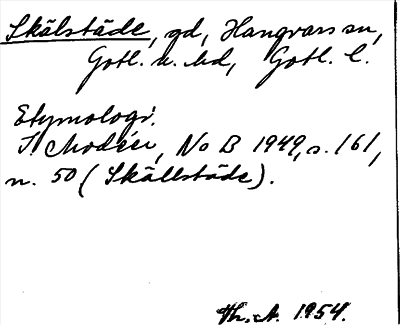 Skälstäde, gd, Hangvars sn,
Gotl. n. hd, Gotl. l.
Etymologi:
I. Modéer, NoB 1949, s. 161,
n. 50 (Skällstäde).
1954.